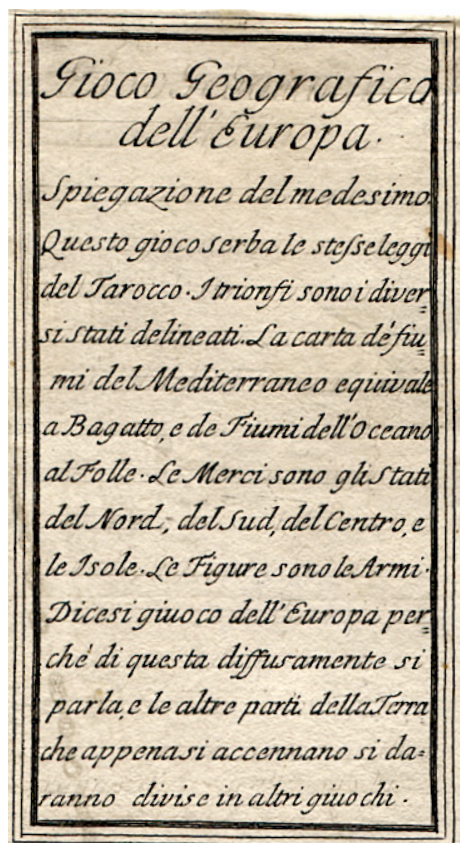 Gioco Geografico
dell'Europa.
Spiegazione del medesimo.
Questo gioco serba le stesse leggi
del Tarocco. I trionfi sono i diver=
si stati delineati. La carta de' fiu=
mi del Mediterraneo equivale
a Bagatto, e de Fiumi dell'Oceano
al Folle. Le Merci sono gli Stati
del Nord, del Sud, del Centro, e
le Isole. Le Figure sono le Armi.
Dicesi giuoco dell'Europa per=
ché di questa diffusamente si
parla, e le altre parti della Terra
che appena si accennano si da=
ranno divise in altri giuochi.